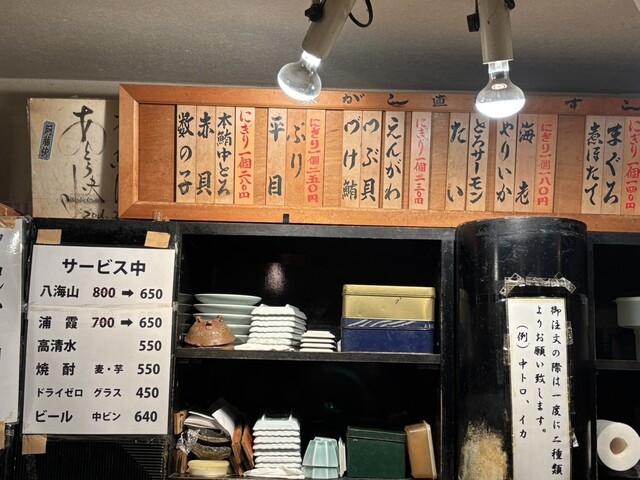 がし直 すし
にぎり 一個一四〇円
まぐろ
煮ほたて
にぎり一個一八〇円
海老
やりいか
とろサーモン
たい
にぎり一個二三〇円
えんがわ
つぶ貝
づけ鮪
にぎり一個二五〇円
ぶり
平目
にぎり一個二八〇円
本鮪中とろ
赤貝
数の子
サービス中
八海山 800 ➡ 650
浦霞 700 ➡ 650
高清水 550
焼酎 麦・芋 550
ドライゼロ グラス 450
ビール 中ビン 640
御注文の際は一度に二種類
よりお願い致します。
(例) 中トロ、イカ